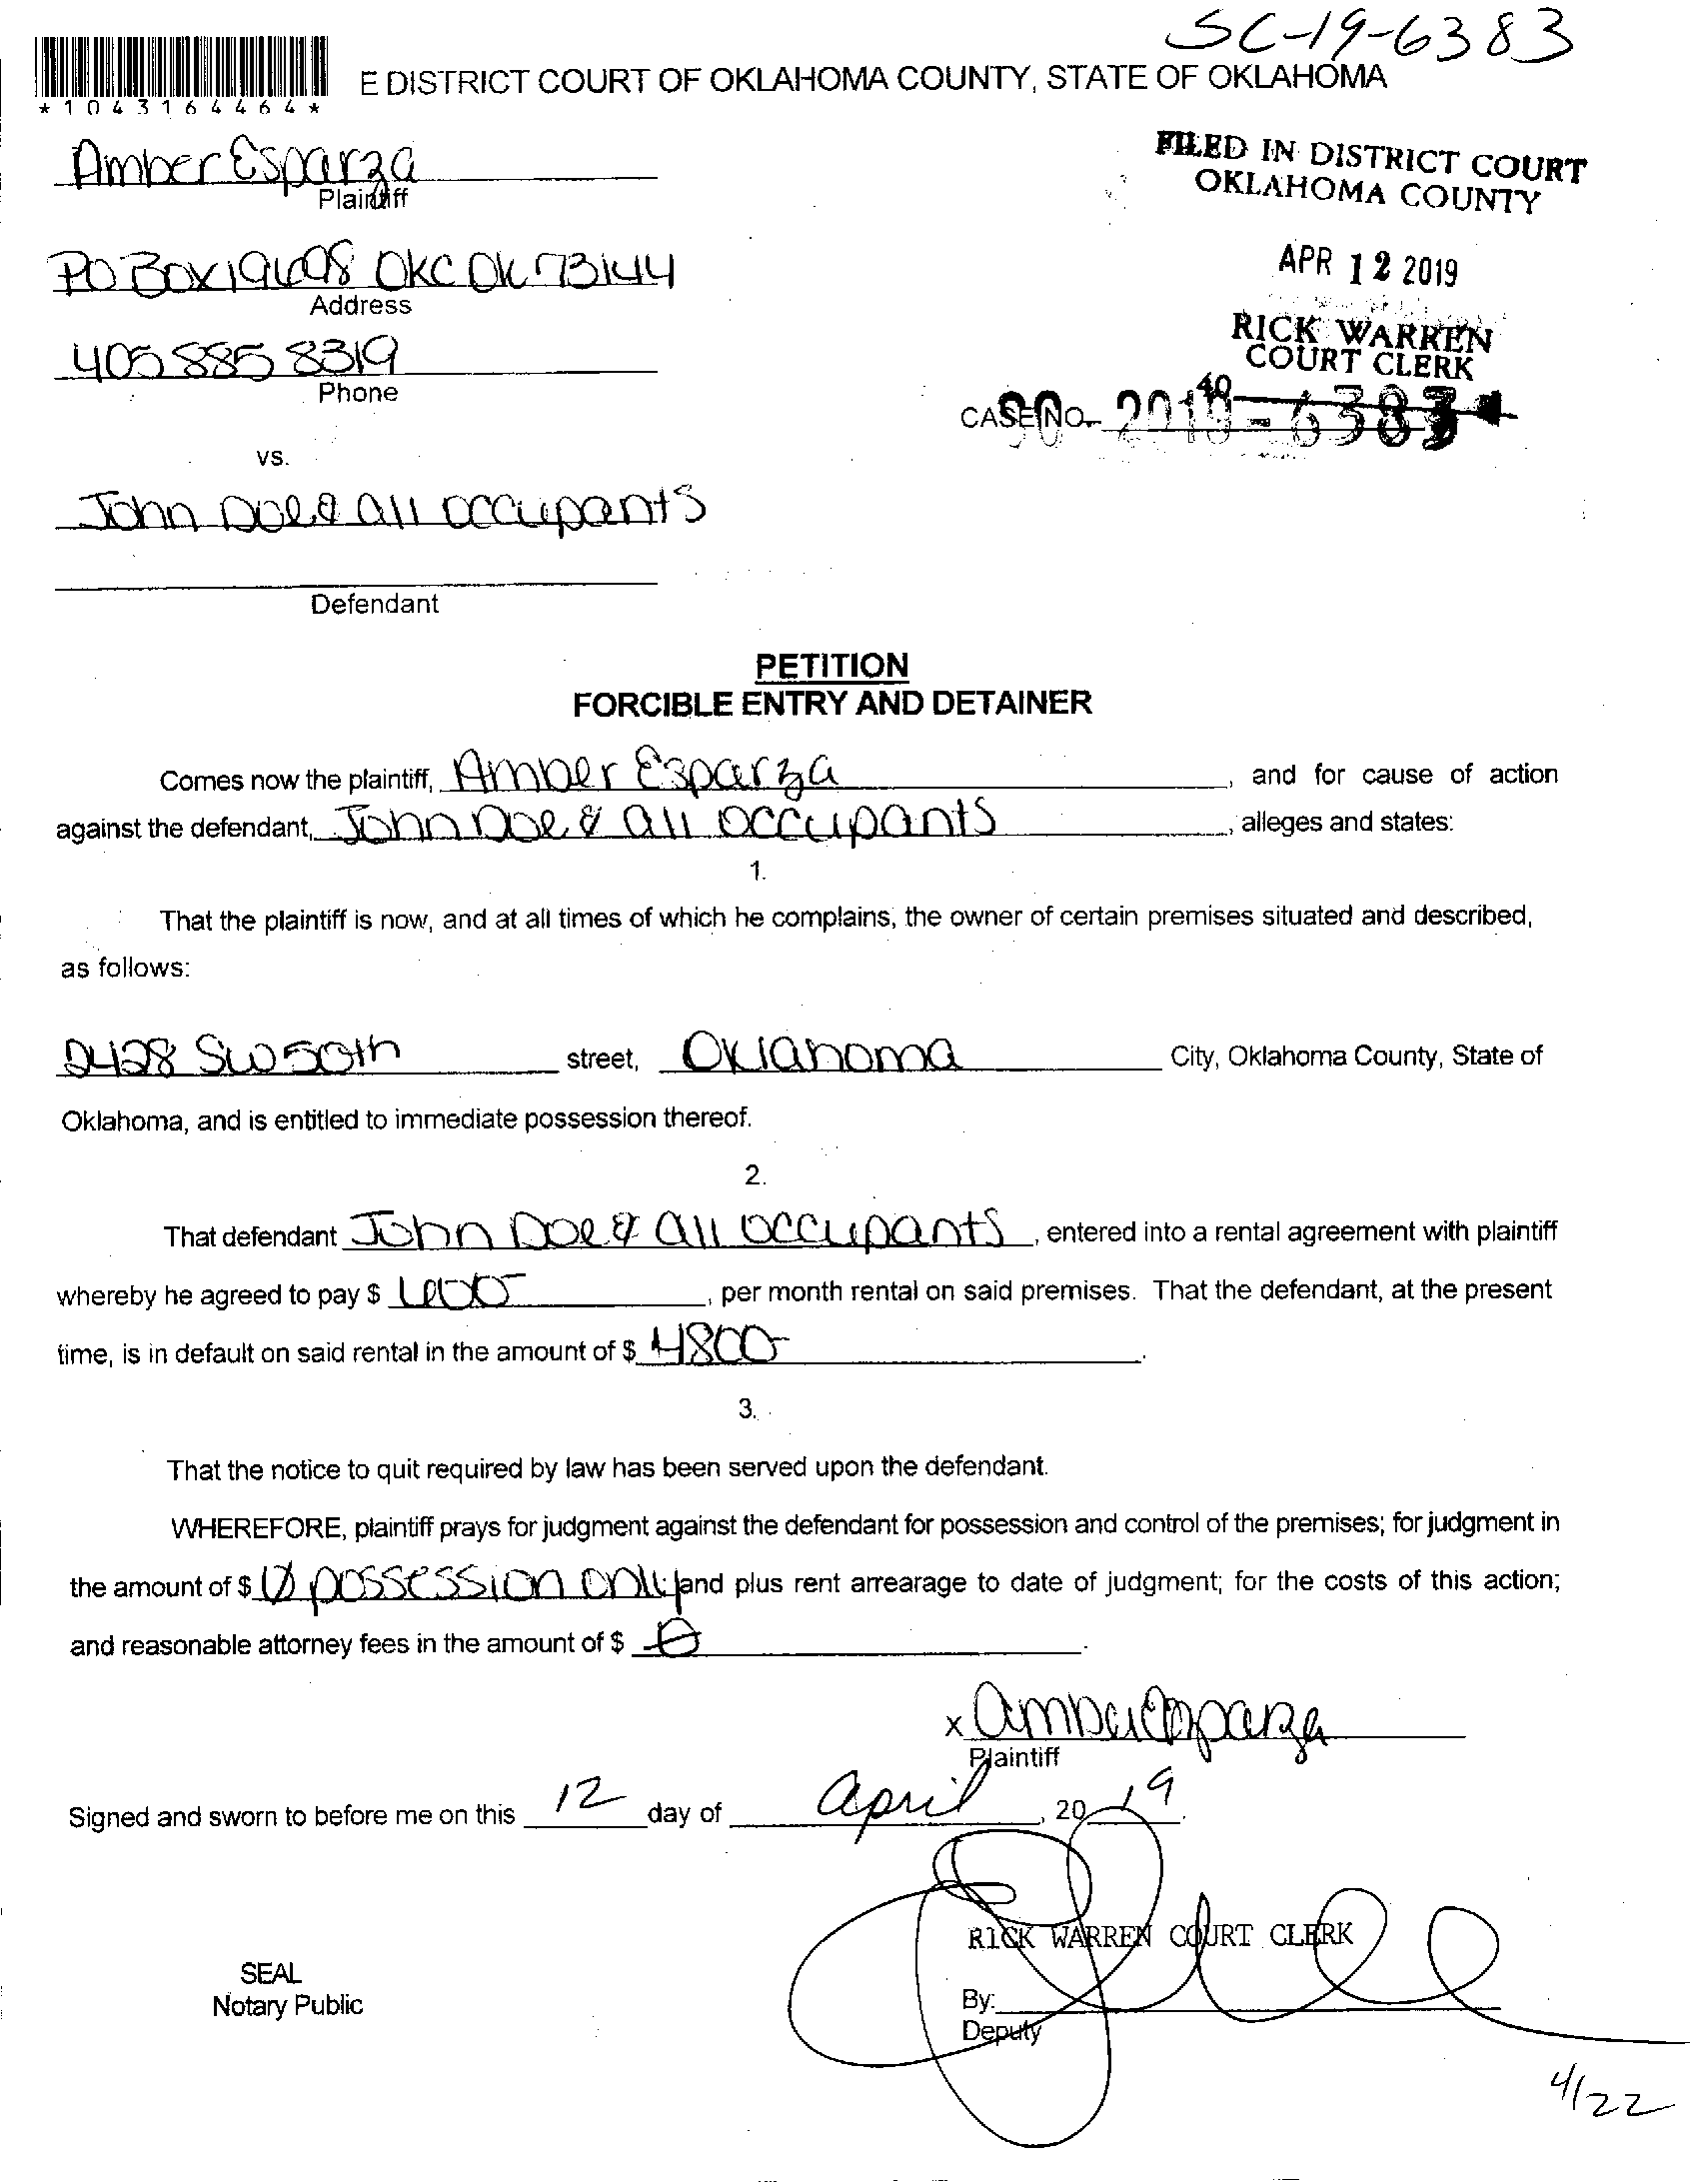 SC-19-6383
E DISTRICT COURT OF OKLAHOMA COUNTY, STATE OF OKLAHOMA
*1043164464*
Amber Esparza
Plaintiff
FILED IN DISTRICT COURT
OKLAHOMA COUNTY
PO Box 19698 OKC OK 73144
Address
APR 12 2019
RICK WARREN
COURT CLERK
405 885 8319
Phone
40
CASE NO. SC 2019-6383
vs.
John Doe & all occupants
Defendant
PETITION
FORCIBLE ENTRY AND DETAINER
Comes now the plaintiff, Amber Esparza, and for cause of action
against the defendant, John Doe & all occupants, alleges and states:
1.
That the plaintiff is now, and at all times of which he complains, the owner of certain premises situated and described,
as follows:
2428 SW 50th street, Oklahoma City, Oklahoma County, State of
Oklahoma, and is entitled to immediate possession thereof.
2.
That defendant John Doe & all occupants, entered into a rental agreement with plaintiff
whereby he agreed to pay $ 600-, per month rental on said premises. That the defendant, at the present
time, is in default on said rental in the amount of $ 4800-.
3.
That the notice to quit required by law has been served upon the defendant.
WHEREFORE, plaintiff prays for judgment against the defendant for possession and control of the premises; for judgment in
the amount of $ Ø possession only and plus rent arrearage to date of judgment; for the costs of this action;
and reasonable attorney fees in the amount of $ Ø.
x Amber Esparza
Plaintiff
Signed and sworn to before me on this 12 day of April, 2019.
RICK WARREN COURT CLERK
SEAL
Notary Public
By:
Deputy
4/22